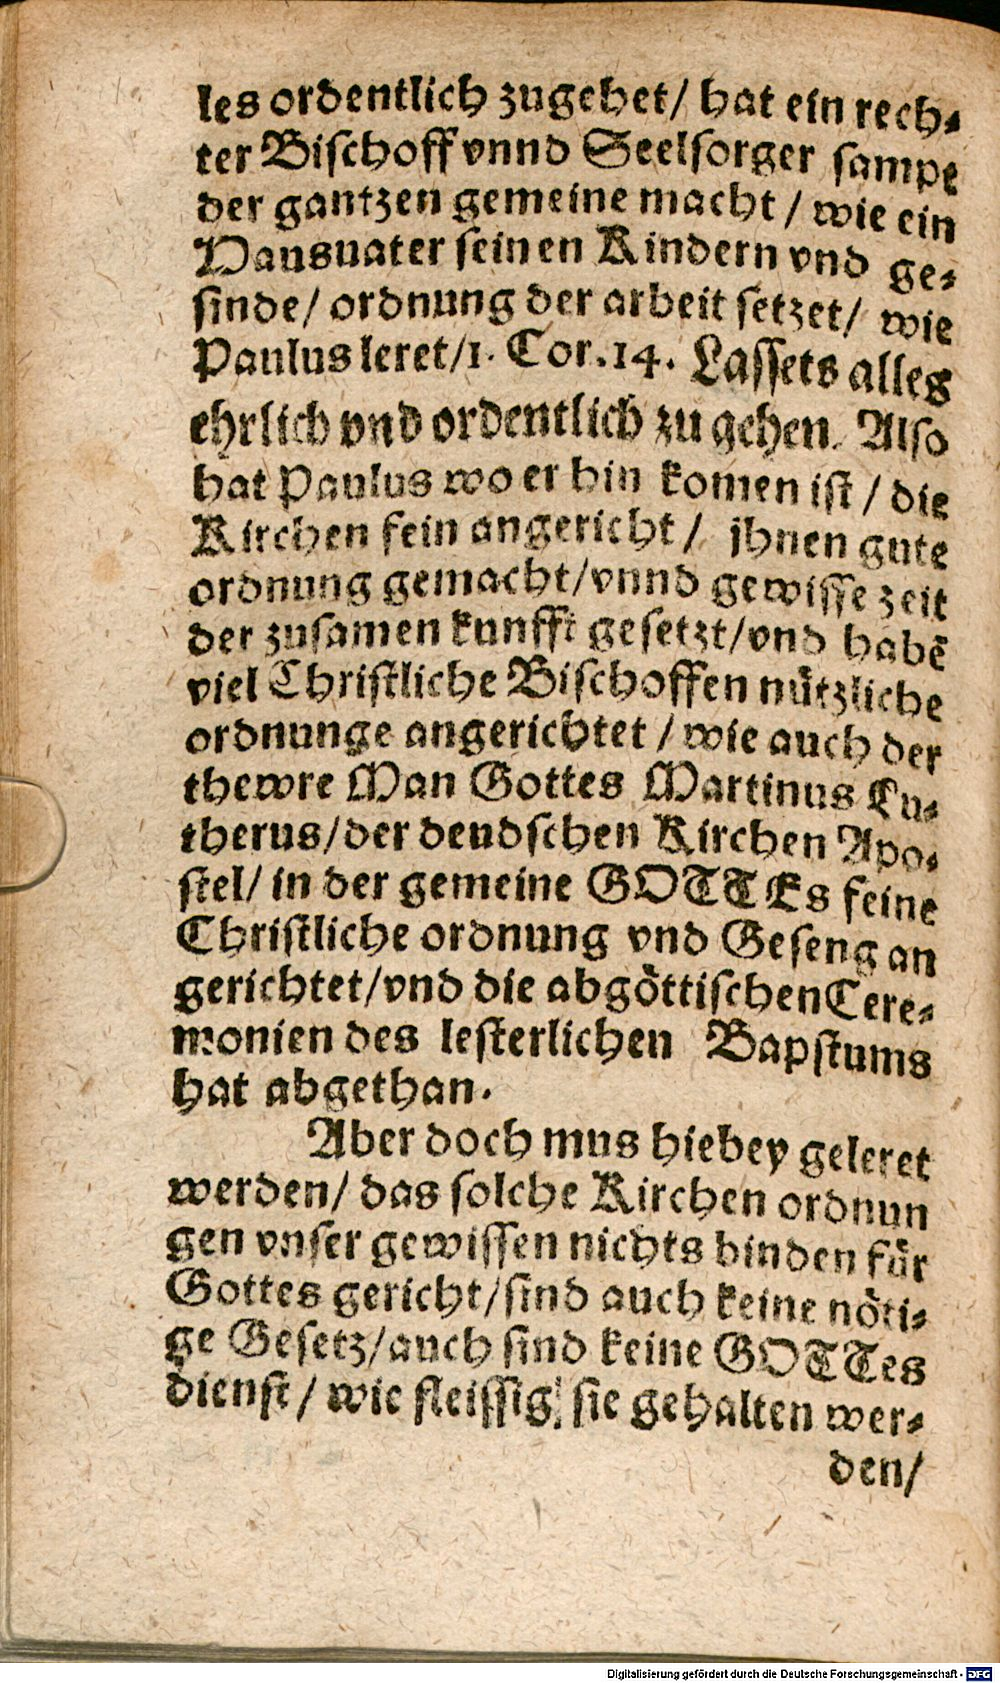 les ordentlich zugehet/ hat ein rech⸗
ter Bischoff vnnd Seelsorger sampt
der gantzen gemeine macht / wie ein
Hausuater seinen Kindern vnd ge⸗
sinde/ ordnung der arbeit setzet/ wie
Paulus leret/1. Cor.14. Lassets alles
ehrlich vnd ordentlich zu gehen. Also
hat Paulus wo er hin komen ist / die
Kirchen fein angericht / jhnen gute
ordnung gemacht/vnnd gewisse zeit
der zusamen kunfft gesetzt/vnd habē
viel Christliche Bischoffen nützliche
ordnunge angerichtet / wie auch der
thewre Man Gottes Martinus Lu⸗
therus/der deudschen Kirchen Apo⸗
stel/ in der gemeine GOTTEs feine
Christliche ordnung vnd Geseng an
gerichtet/vnd die abgöttischen Cere⸗
monien des lesterlichen Bapstums
hat abgethan.
Aber doch mus hiebey geleret
werden/ das solche Kirchen ordnun
gen vnser gewissen nichts binden für
Gottes gericht/sind auch keine nöti⸗
ge Gesetz/auch sind keine GOTTes
dienst / wie fleissig sie gehalten wer⸗
den/
Digitalisierung gefördert durch die Deutsche Forschungsgemeinschaft - DFG